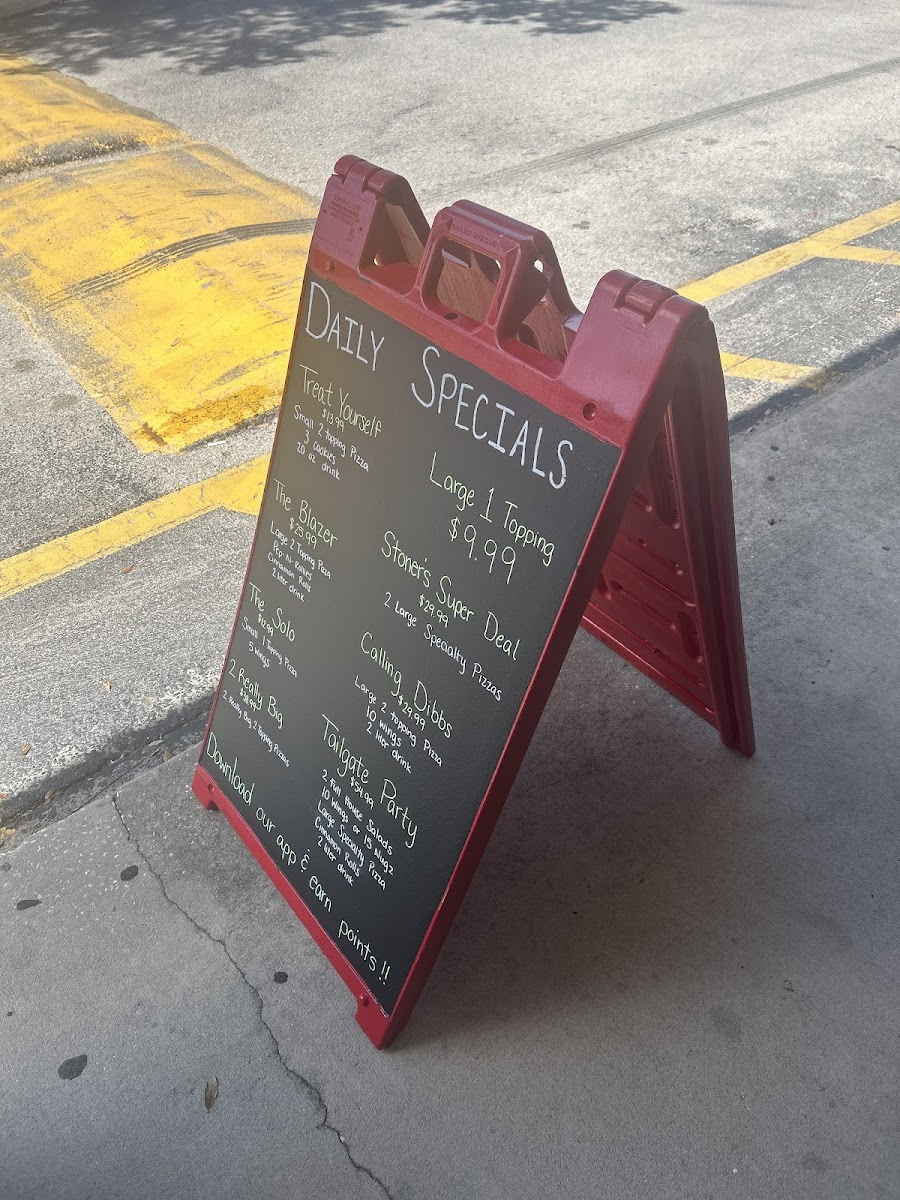 DAILY SPECIALS
Treat Yourself
$13.99
Small 2 topping Pizza
3 cookies
20 oz drink
The Blazer
$25.99
Large 2 Topping Pizza
Pep-N-Rollies
Cinnamon Rolls
2 liter drink
The Solo
$12.99
Small 1 Topping Pizza
5 wings
2 Really Big
$38.99
2 Really Big 2 Topping Pizzas
Large 1 Topping
$9.99
Stoner's Super Deal
$29.99
2 Large Specialty Pizzas
Calling Dibbs
$29.99
Large 2 topping Pizza
10 wings
2 liter drink
Tailgate Party
$54.99
2 Full House Salads
10 wings or 15 Nugz
Large Specialty Pizza
Cinnamon Rolls
2 liter drink
Download our app & earn points!!